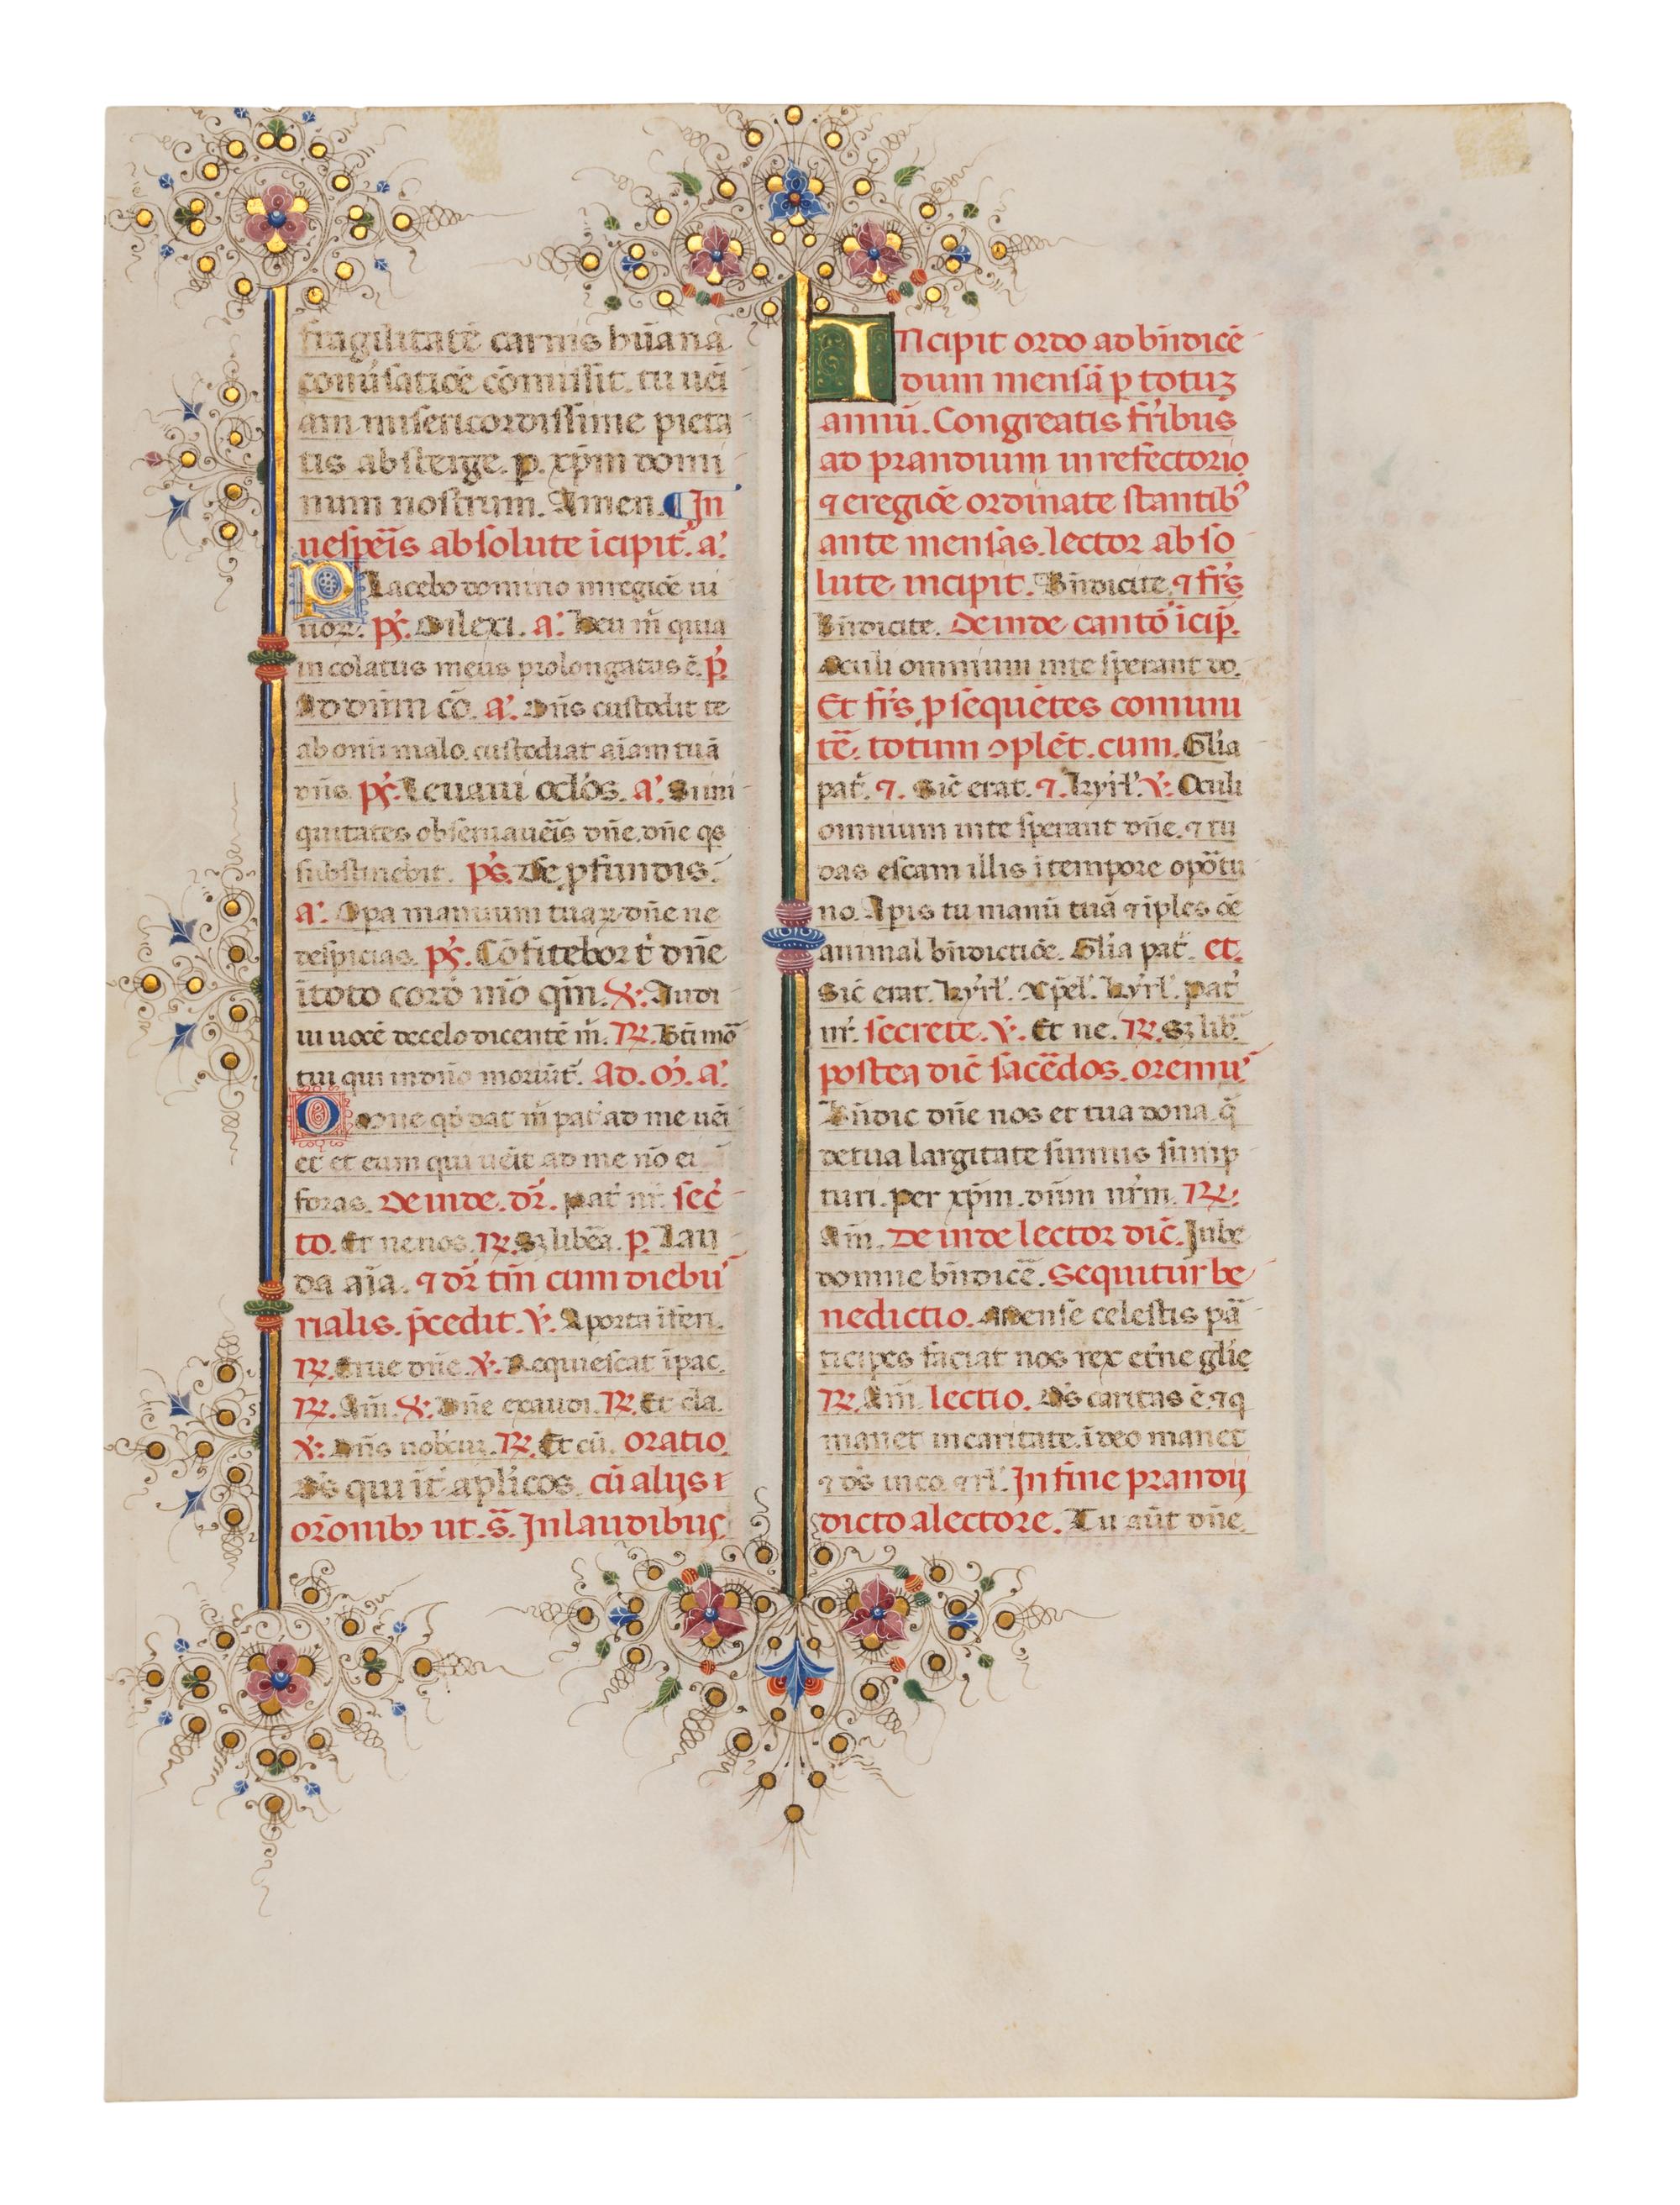 fragilitatē carnis hūana
cōnūsatiōe cōmisit. tu uēi
am misericordissime pieta
tis absterge. p. xp̄m domi
num nostrum. Amen. ¶ In
uesp̄eis absolute īcipit̄. a'.
Placebo domino inregiōe ui
uoꝝ. ps̄. Dilexi. a'. Heu m̄ quia
incolatus meus prolongatus ē. p̄.
Ad dn̄m cō. a'. Dn̄s custodit te
ab omī malo. custodiat aīam tuā
dn̄s. ps̄. Leuaui oclōs. a'. Si ini
quitates obseruauēis dn̄e. dn̄e qs
substinebit. ps̄. De p̄fundis.
a'. Opa manuum tuaꝝ dn̄e ne
despicias. ps̄. Cōfitebor t̄ dn̄e
ītoto cord̄ mō qm̄. ℣. Audi
ui uocē decelo dicentē m̄. ℟. Bt̄i mō
tui qui in dn̄o moriūt̄. ad. M̄. a'.
Omne qd̄ dat m̄ pat̄ ad me uēi
et et eum qui uēit ad me nō ei
foras. Deinde. dr̄. pat̄ nr̄ sec̄
to. Et nenos. ℟. Sꝫ libēa. p̄. Lau
da aīa. ⁊ dr̄ tm̄ cum diebu'
rialis. p̄cedit. ℣. Aporta īferi.
℟. Erue dn̄e. ℣. Requiescat īpac.
℟. Am̄. ℣. Dn̄e exaudi. ℟. Et cla.
℣. Dn̄s nobcuꝫ. ℟. Et cū. oratio
Ds̄ qui īt̄ ap̄licos. cū alijs ⁊
orōnibꝫ ut. s̄. In laudibus
Incipit ordo ad bn̄dicē
dum mensā p totuꝫ
annū. Congreatis fr̄ibus
ad prandium in refectorio
⁊ eregiōe ordinate stantib'
ante mensas. lector abso
lute incipit. Bn̄dicite. ⁊ fr̄s
Bn̄dicite. Deinde cantō īcip̄.
Oculi omnium inte sperant do.
Et fr̄s p̄sequētes comuni
tē. totum ꝯplēt. cum. Glīa
pat̄. ⁊. Sic̄ erat. ⁊. kyrl'. ℣. Oculi
omnium inte sperant dn̄e. ⁊ tu
das escam illis ī tempore opōtu
no. Apis tu manū tuā ⁊ īples ōe
animal bn̄dictiōe. Glīa pat̄. et.
Sic̄ erat. kyrl'. Xp̄el'. kyrl'. pat̄
nr̄. secrete. ℣. Et ne. ℟. Sꝫ lib̄.
postea dic̄ sacēdos. oremu'
Bn̄dic dn̄e nos et tua dona. q̄
detua largitate sumus sump
turi. per xp̄m. dn̄m nr̄m. ℟.
Am̄. Deinde lector dic̄. Jube
domne bn̄dicē. Sequitur be
nedictio. Mense celestis pā
ticipes faciat nos rex et̄ne glīe
℟. Am̄. lectio. Ds̄ caritas ē. ⁊ q
manet in caritate. ī deo manet
⁊ ds̄ in eo. ⁊ rl'. In fine prandij
dicto alectore. Tu aūt dn̄e